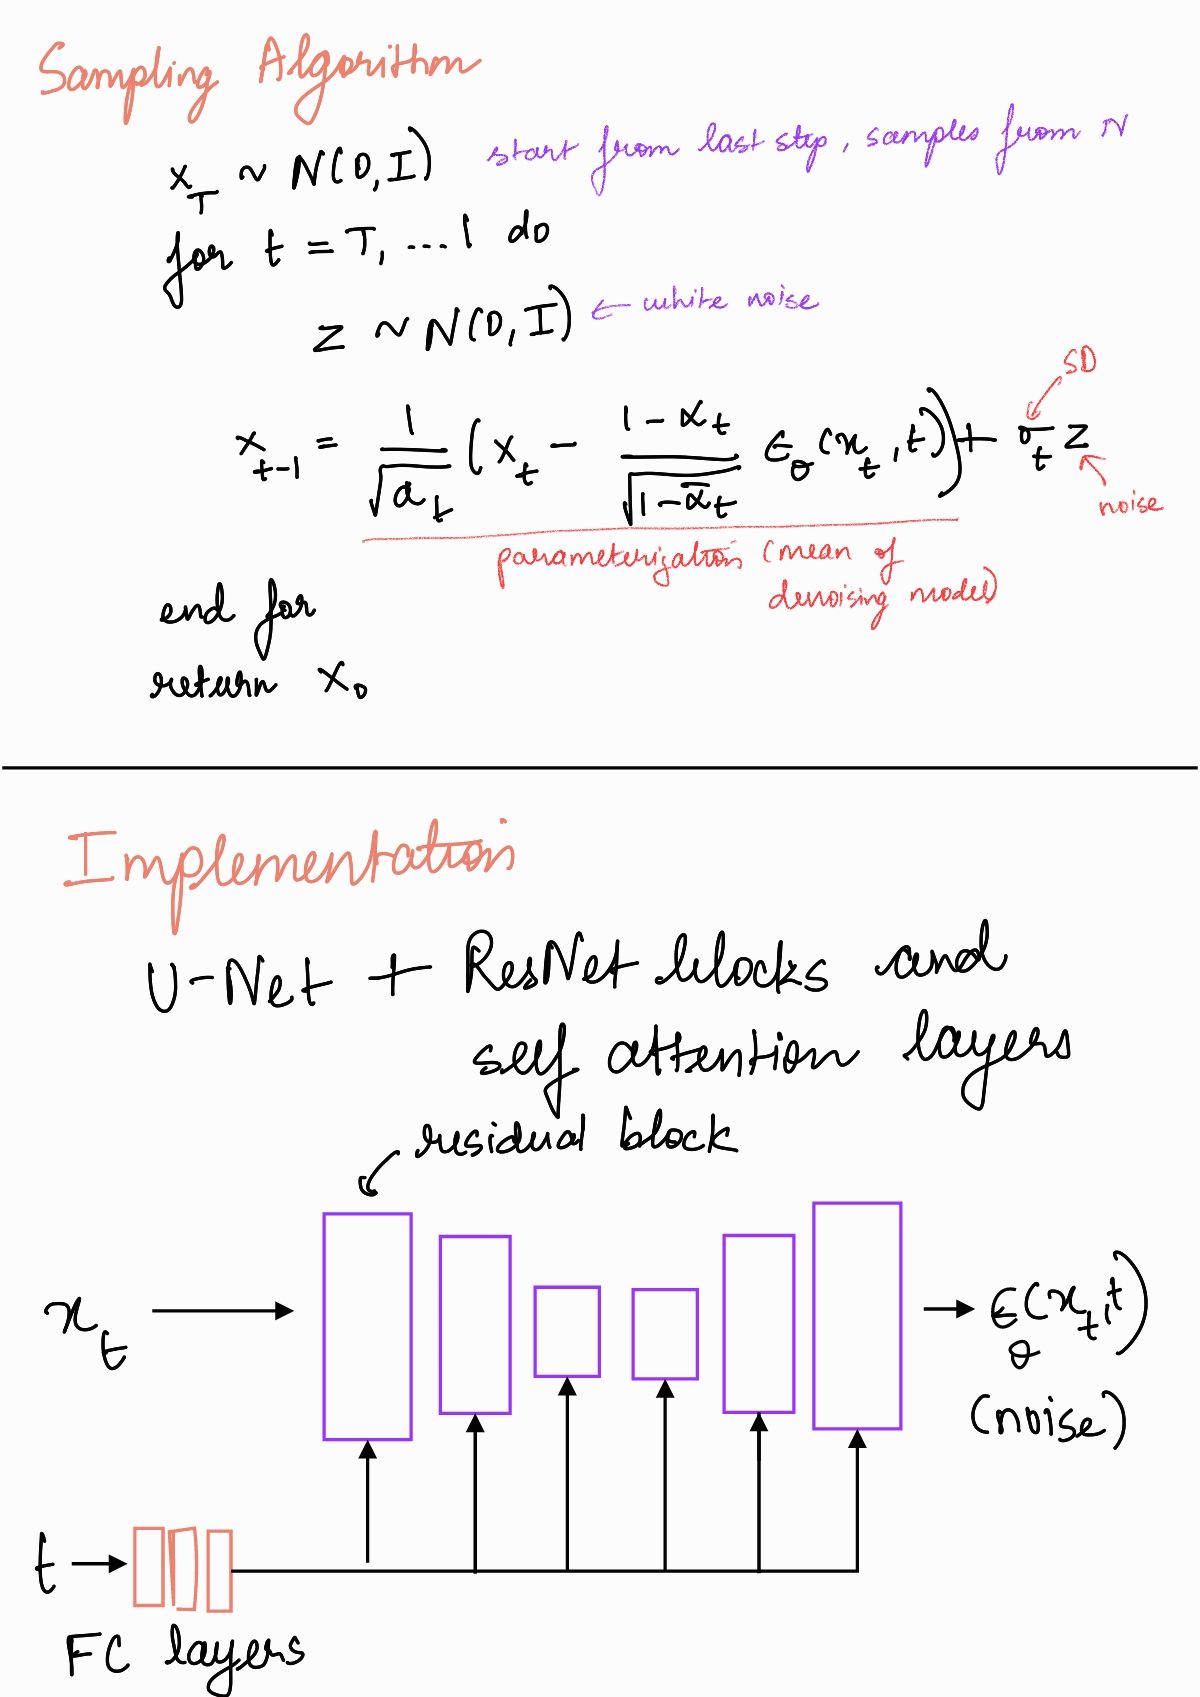 Sampling Algorithm
x_T ~ N(0, I) start from last step, samples from N
for t = T, ... 1 do
z ~ N(0, I) ← white noise
SD
x_{t-1} = 1/√a_t (x_t - (1-α_t)/√(1-ᾱ_t) ϵ_θ(x_t, t)) + σ_t z
noise
parameterization (mean of
denoising model)
end for
return x_0
Implementation
U-Net + ResNet blocks and
self attention layers
residual block
x_t
ϵ_θ(x_t, t)
(noise)
t
FC layers